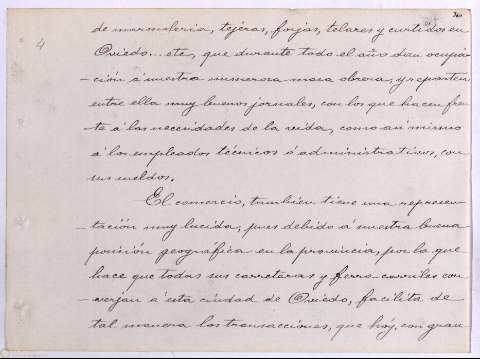 4
de marmolería, tejeras, forjas, telares y curtidos en
Oviedo... etc, que durante todo el año dan ocupa-
-ción á nuestra numerosa masa obrera, y reparten
entre ella muy buenos jornales, con los que hacen fren
te á las necesidades de la vida, como asi mismo
á los empleados técnicos ó administrativos, con
sus sueldos.
El comercio, tambien tiene una represen-
-tación muy lucida, pues debido á nuestra buena
posición geográfica en la provincia, por lo que
hace que todas sus carreteras y ferro-carriles con
-verjan á esta ciudad de Oviedo, facilita de
tal manera las transacciones, que hoy, con gran